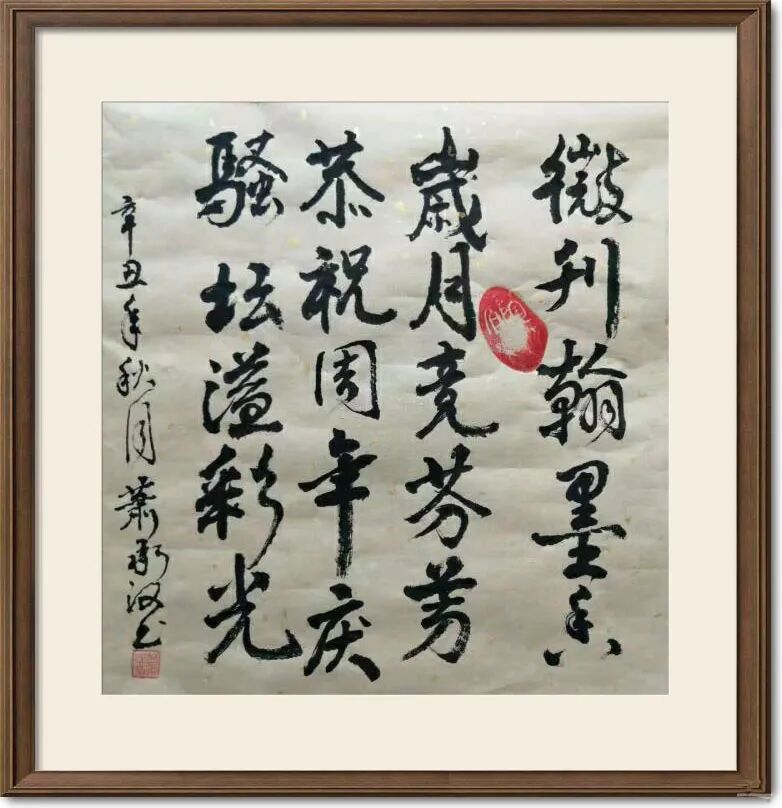 微刊翰墨香
歲月竞芬芳
恭祝周年庆
騷坛溢彩光
辛丑年秋月蕭汉书